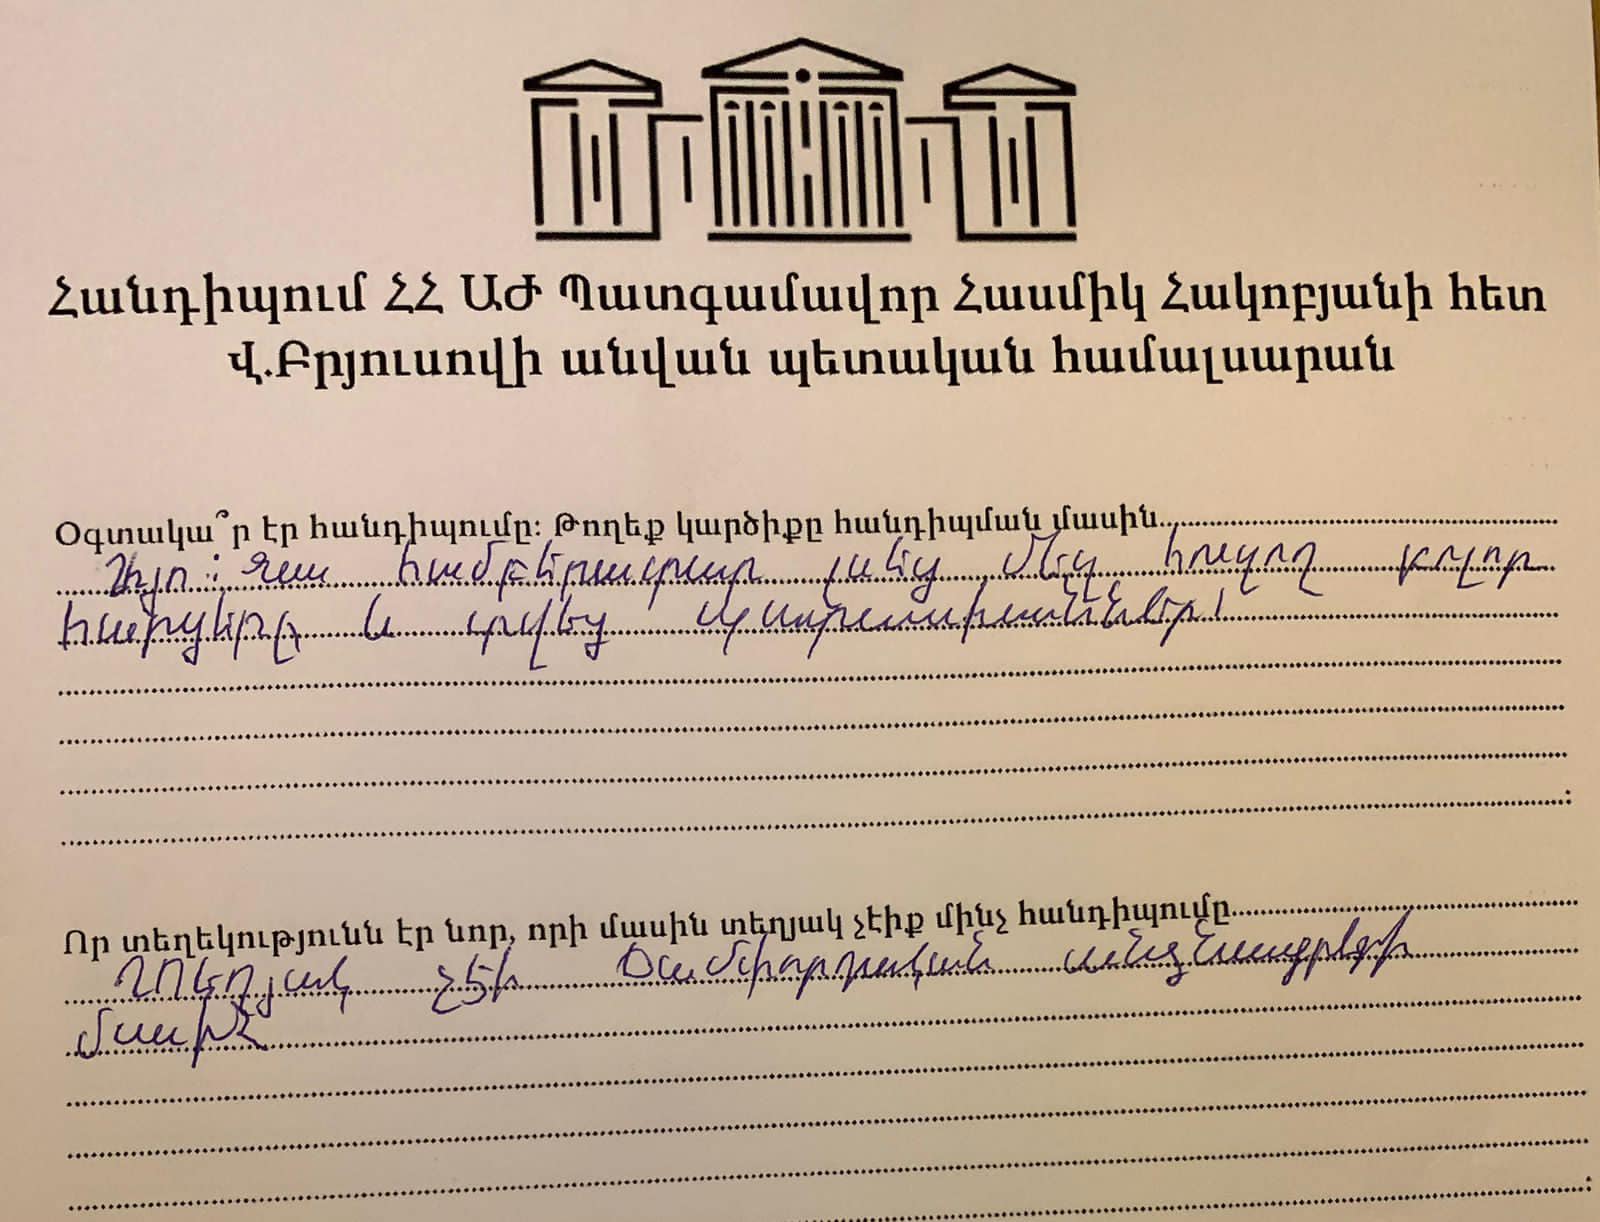 Հանդիպում ՀՀ ԱԺ Պատգամավոր Հասմիկ Հակոբյանի հետ
Վ.Բրյուսովի անվան պետական համալսարան
Օգտակա՞ր էր հանդիպումը: Թողեք կարծիքը հանդիպման մասին
Այո: Շատ համբերատար լսեց մեկ հուզող բոլոր
հարցերը և տվեց պատասխաններ:
Որ տեղեկությունն էր նոր, որի մասին տեղյակ չէիք մինչ հանդիպումը
Տեղյակ չէի մասին